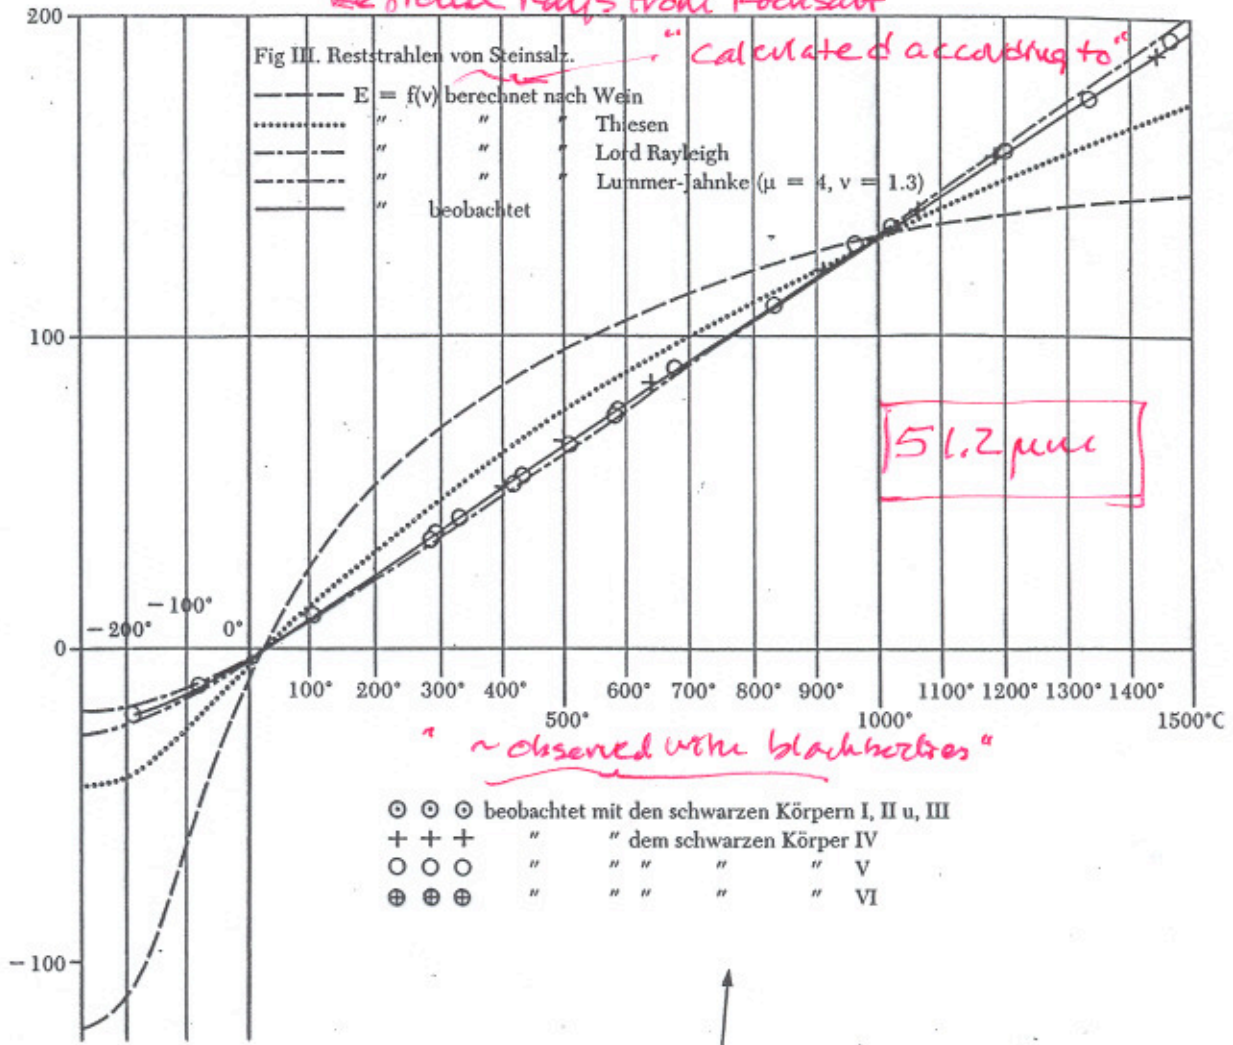 Rays from Rocksalt
200
Fig III. Reststrahlen von Steinsalz.
"Calculated according to"
E = f(v) berechnet nach Wein
" " " Thiesen
" " " Lord Rayleigh
" " " Lummer-Jahnke (μ = 4, ν = 1.3)
" beobachtet
100
51.2 μm
-100°
-200° 0°
0
100° 200° 300° 400° 600° 700° 800° 900° 1100° 1200° 1300° 1400°
500° 1000° 1500°C
" ~ observed with blackbodies"
beobachtet mit den schwarzen Körpern I, II u, III
" " dem schwarzen Körper IV
" " " " " V
" " " " " VI
-100